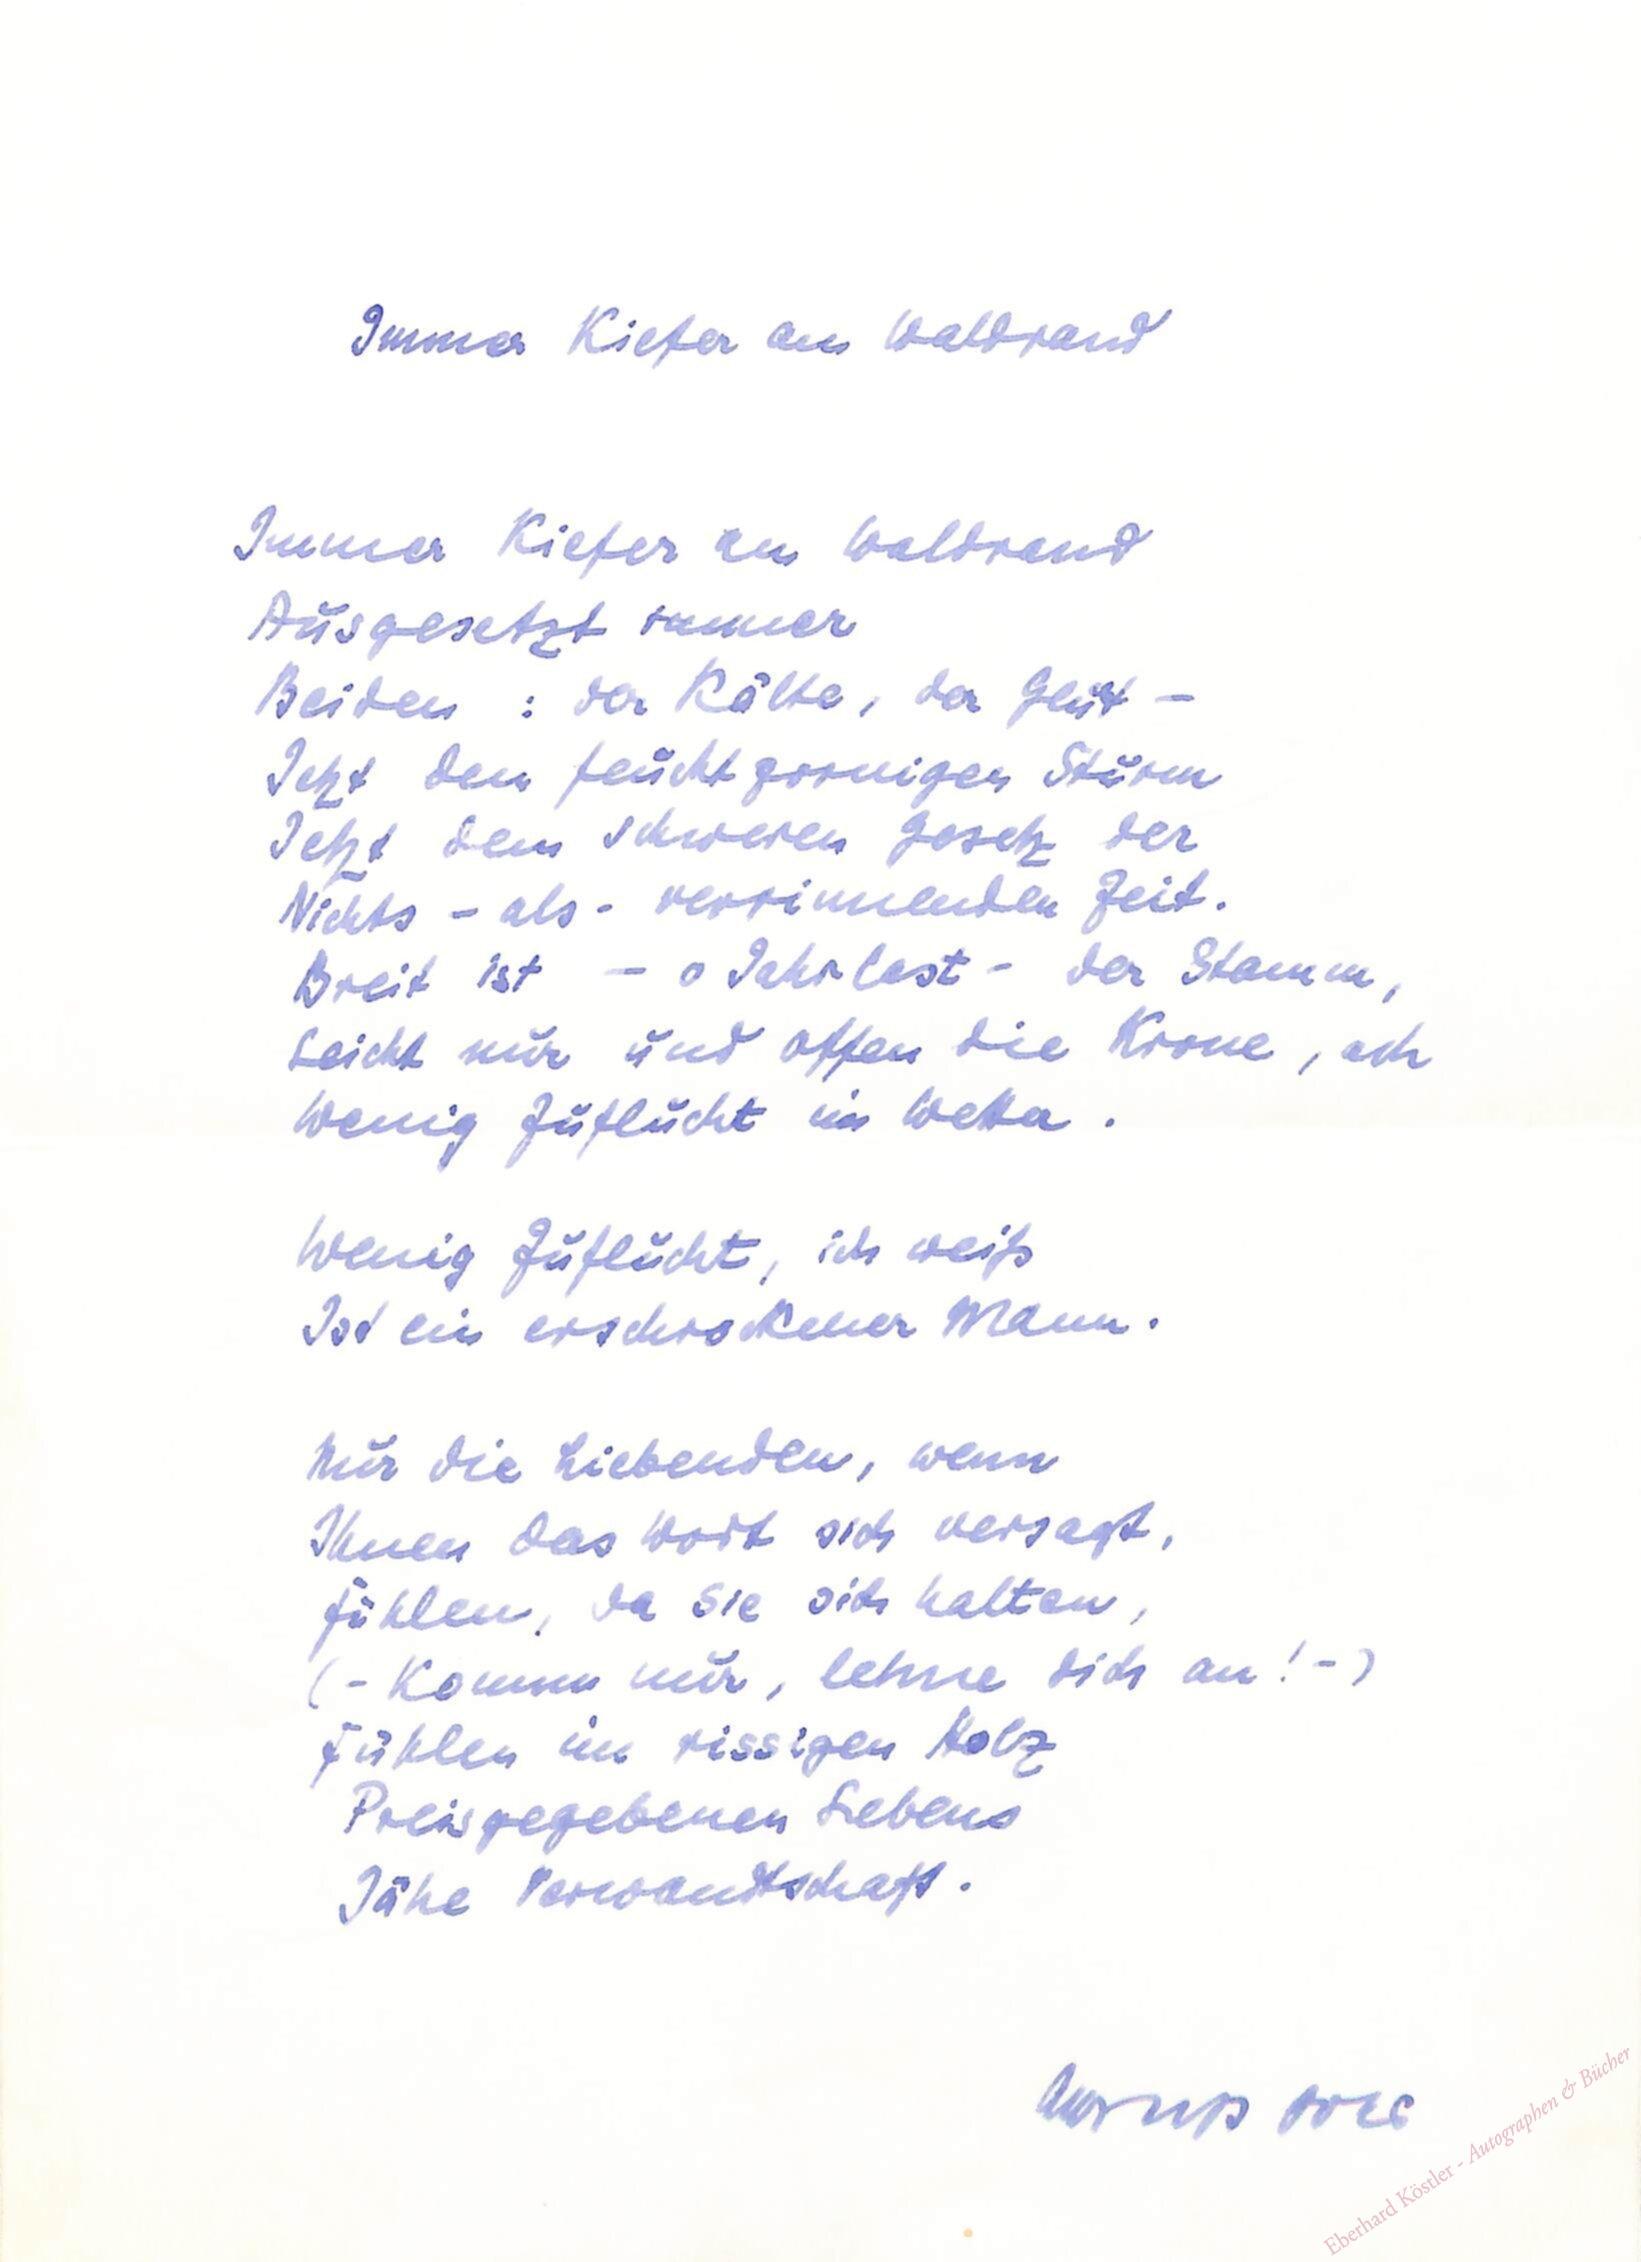 Immer Kiefer am Waldrand
Immer Kiefer am Waldrand
Ausgesetzt immer
Beiden : der Kälte, der Glut -
Jetzt dem feucht zornigen Sturm
Jetzt dem schweren Gesetz der
Nichts - als - verrinnenden Zeit.
Breit ist - o Jahrlast - der Stamm,
Leicht nur und offen die Krone, ach
Wenig Zuflucht im Wetter.
Wenig Zuflucht, ich weiß
Ist ein erschrockener Mann.
Nur die Liebenden, wenn
Ihnen das Wort sich versagt,
fühlen, da sie sich halten,
(- Komm nur, lehne dich an! -)
Fühlen im rissigen Holz
Preisgegebenen Lebens
Jähe Verwandtschaft.
Eberhard Köstler - Autographen & Bücher